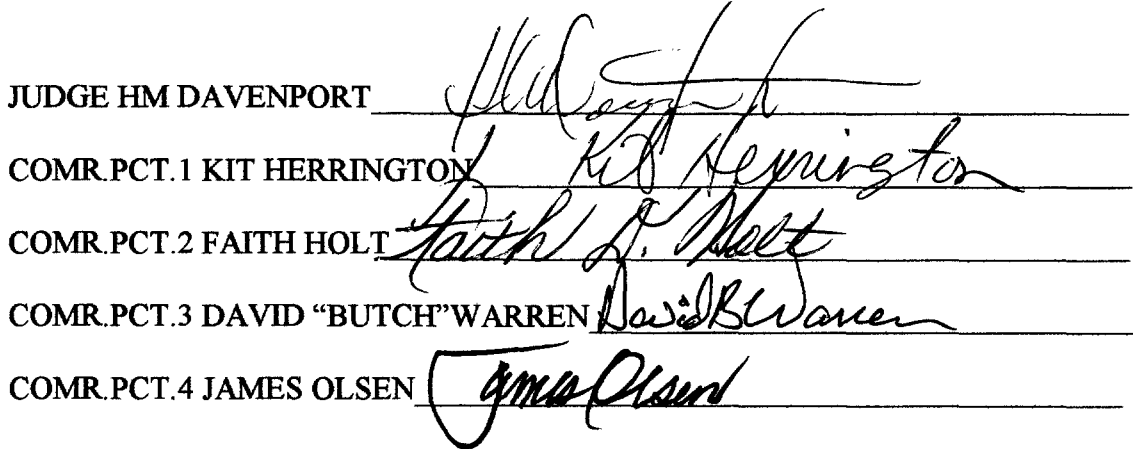 JUDGE HM DAVENPORT HM Davenport
COMR.PCT.1 KIT HERRINGTON Kit Herrington
COMR.PCT.2 FAITH HOLT Faith D. Holt
COMR.PCT.3 DAVID “BUTCH”WARREN David B Warren
COMR.PCT.4 JAMES OLSEN James Olsen